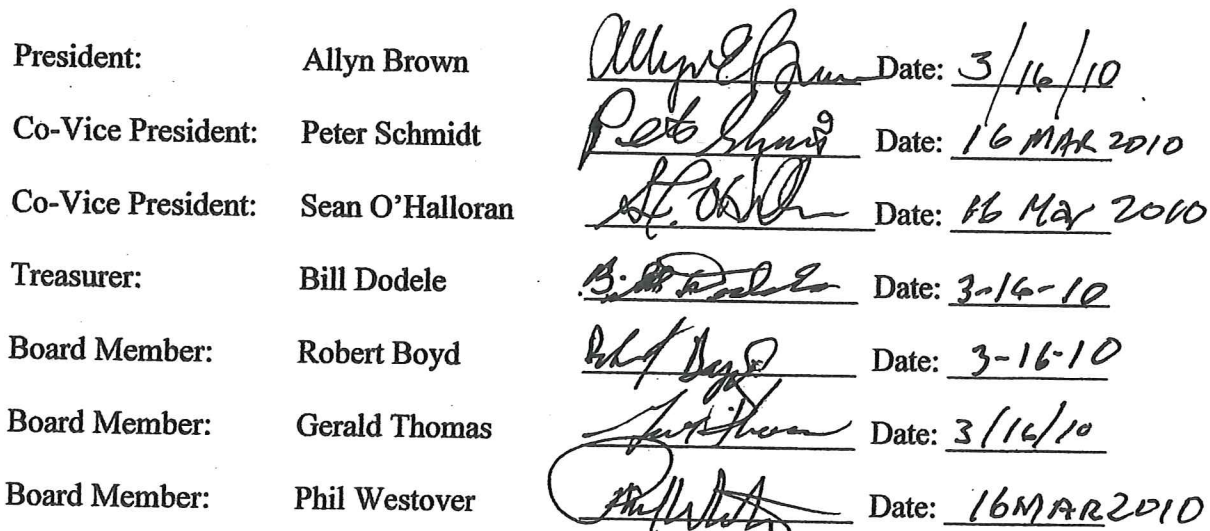 President: Allyn Brown Allyn E. Brown Date: 3/16/10
Co-Vice President: Peter Schmidt Date: 16 MAR 2010
Co-Vice President: Sean O'Halloran Date: 16 Mar 2010
Treasurer: Bill Dodele Bill Dodele Date: 3-16-10
Board Member: Robert Boyd Robert Boyd Date: 3-16-10
Board Member: Gerald Thomas Date: 3/16/10
Board Member: Phil Westover Date: 16MAR2010